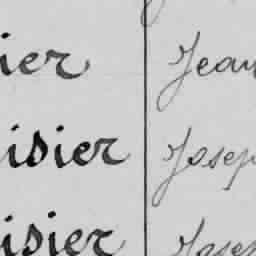 ier Jean
isier Josep
isier Josep